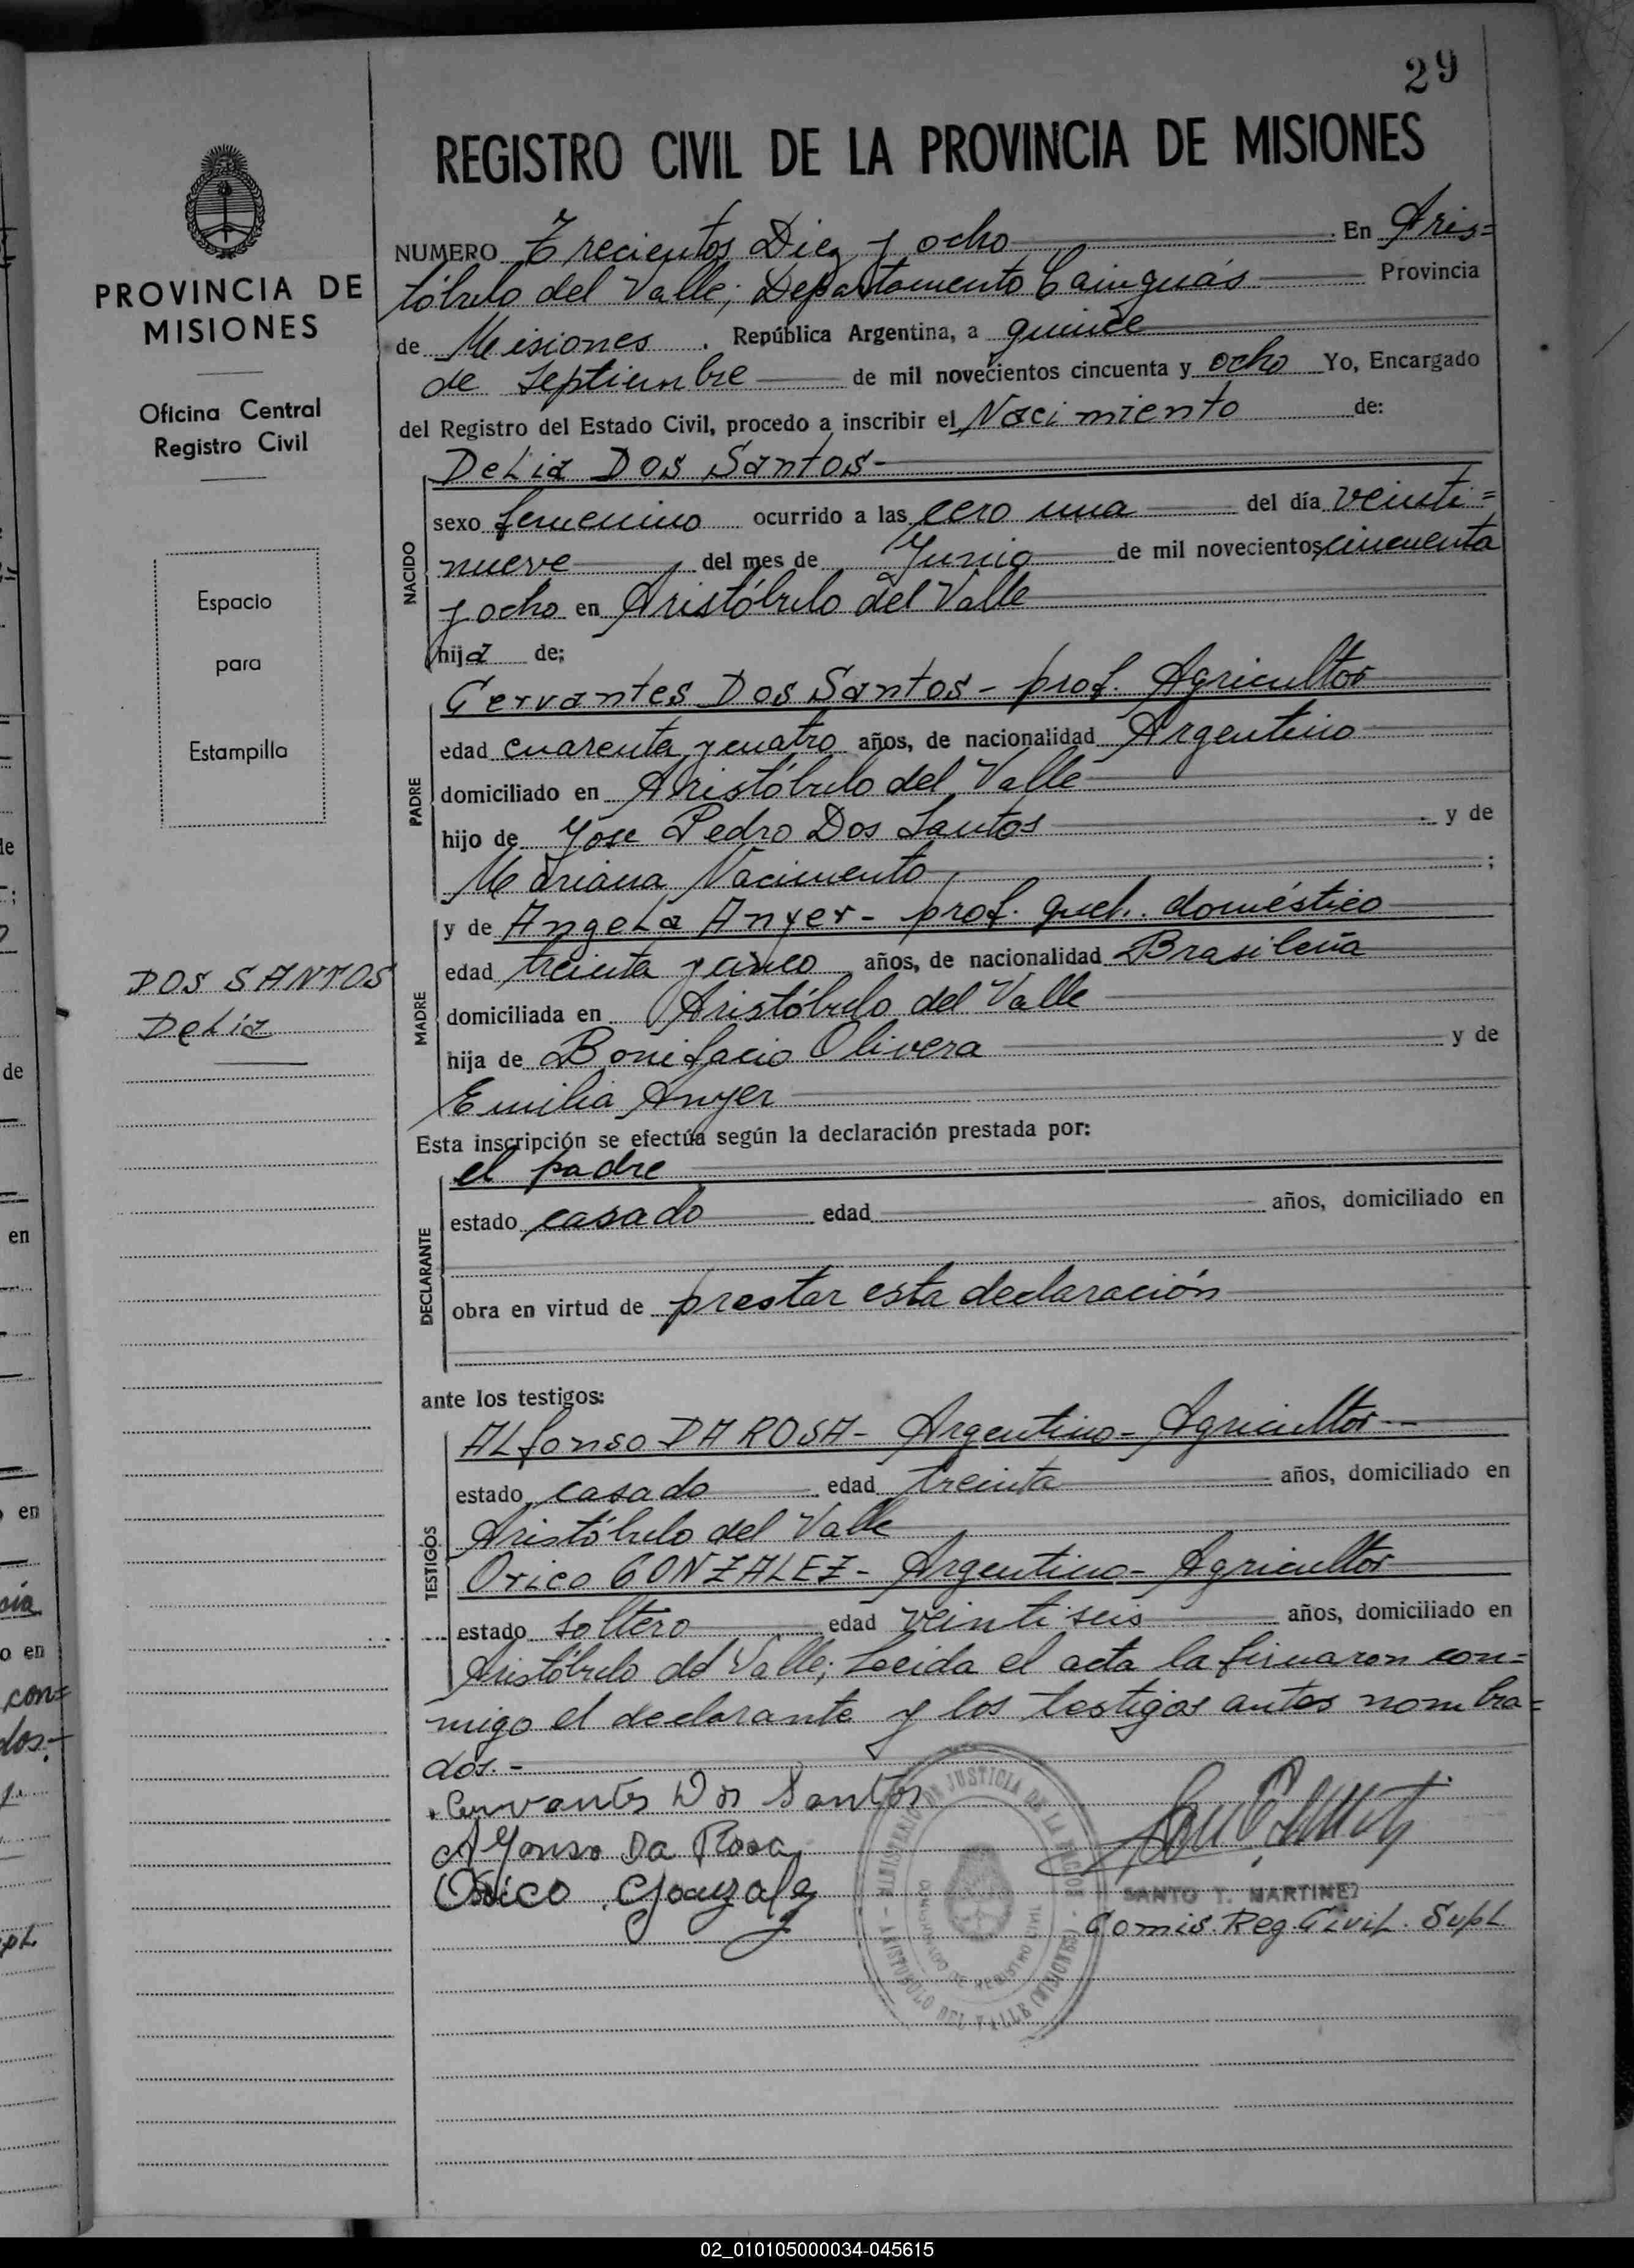 29
REGISTRO CIVIL DE LA PROVINCIA DE MISIONES
PROVINCIA DE
MISIONES
Oficina Central
Registro Civil
Espacio
para
Estampilla
DOS SANTOS
Delia
NUMERO Trecientos Diez y ocho En Aris=
tóbulo del Valle; Departamento Cainguás Provincia
de Misiones . República Argentina, a quince
de septiembre de mil novecientos cincuenta y ocho Yo, Encargado
del Registro del Estado Civil, procedo a inscribir el Nacimiento de:
Delia Dos Santos-
NACIDO
sexo femenino ocurrido a las cero una del día veinti=
nueve del mes de Junio de mil novecientos cincuenta
y ocho en Aristóbulo del Valle
hija de;
Cervantes Dos Santos - prof. Agricultor
PADRE
edad cuarenta y cuatro años, de nacionalidad Argentino
domiciliado en Aristóbulo del Valle
hijo de Jose Pedro Dos Santos y de
Mariana Nacimento ;
y de Angela Anyer - prof. queh. doméstico
MADRE
edad treinta y cinco años, de nacionalidad Brasileña
domiciliada en Aristóbulo del Valle
hija de Bonifacio Olivera y de
Emilia Anyer
Esta inscripción se efectúa según la declaración prestada por:
el padre
DECLARANTE
estado casado edad años, domiciliado en
obra en virtud de prestar esta declaración
ante los testigos:
Alfonso DA ROSA - Argentino - Agricultor
TESTIGOS
estado casado edad treinta años, domiciliado en
Aristóbulo del Valle
Orico GONZALEZ - Argentino - Agricultor
estado soltero edad veintiseis años, domiciliado en
Aristóbulo del Valle; Leeida el acta la firmaron con=
migo el declarante y los testigos antes nombra=
dos.-
Cervantes Dos Santos
Alfonso Da Rosa
Orico Gonzalez
MINISTERIO DE JUSTICIA DE LA NACION - ARISTOBULO DEL VALLE (MISIONES)
SANTO T. MARTINEZ
Comis. Reg. Civil. Supl.
02_010105000034-045615